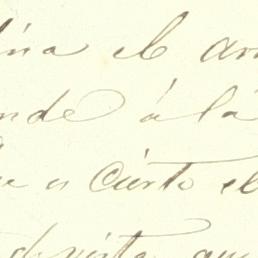 ina el
nde á la
e es cierto el
de vista que